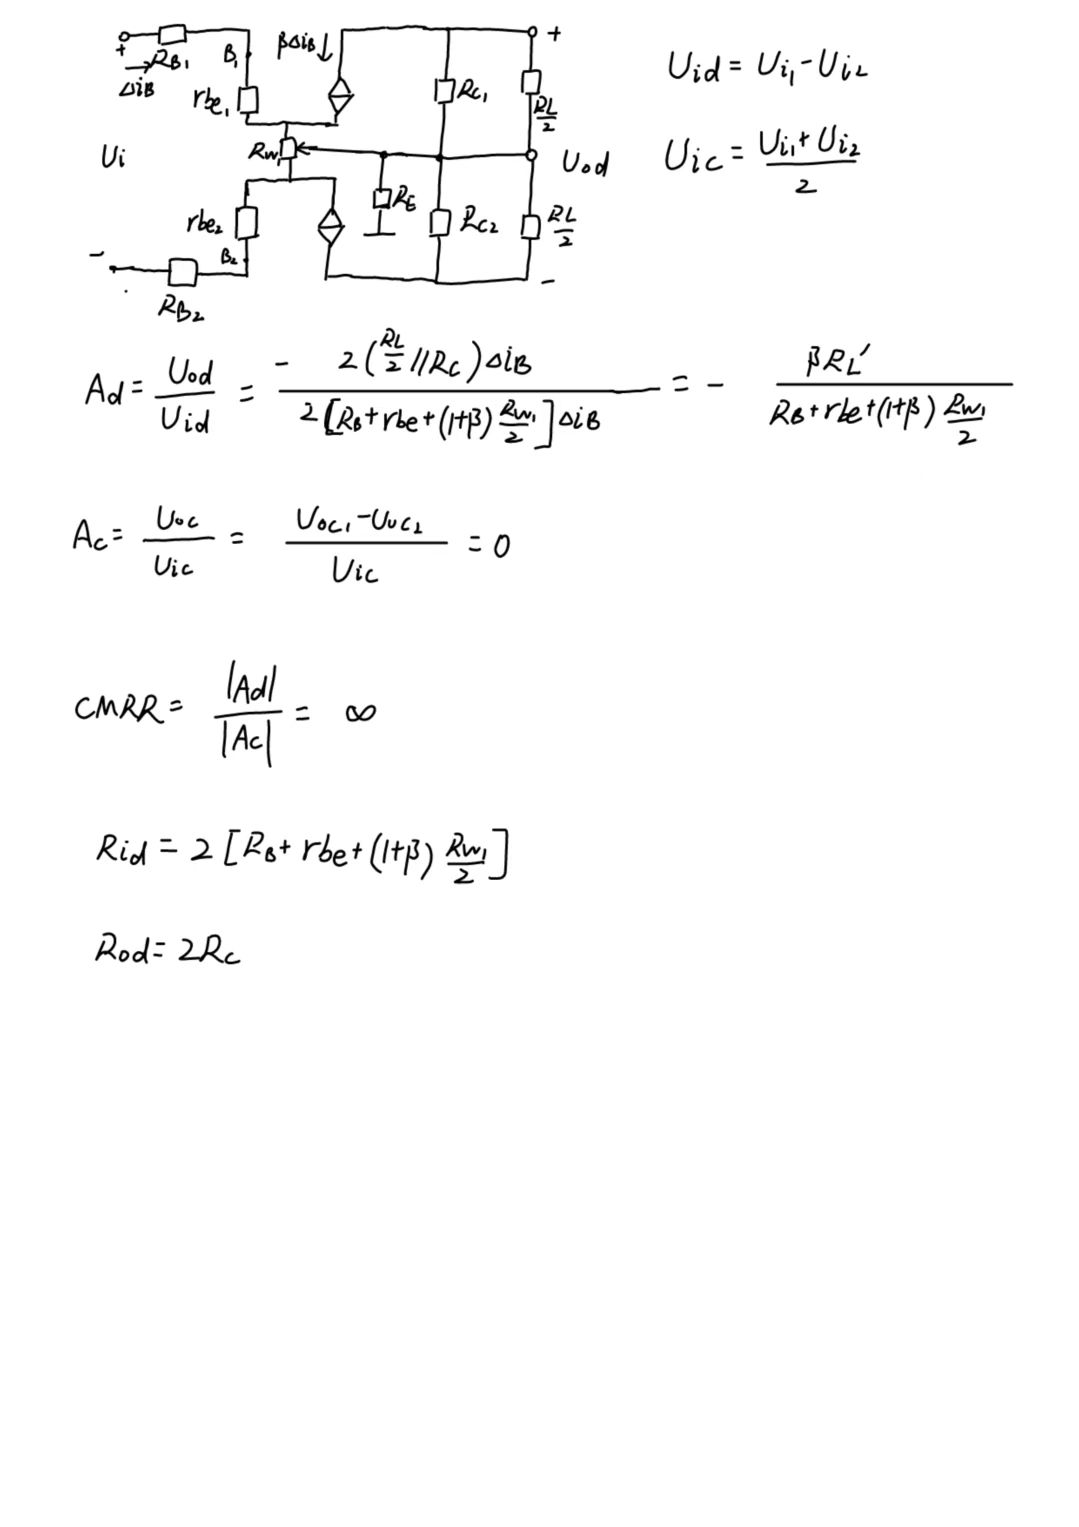 + R_B1 B_1 βΔi_B↓ +
Δi_B r_be1 R_C1 R_L/2
U_i R_W1 U_od
r_be2 R_E R_C2 R_L/2
- B_2 -
R_B2
U_id = U_i1 - U_i2
U_ic = (U_i1 + U_i2)/2
A_d = U_od/U_id = - 2(R_L/2 // R_C)Δi_B / 2[R_B + r_be + (1+β) R_W1/2]Δi_B = - βR_L′ / R_B + r_be + (1+β) R_W1/2
A_c = U_oc/U_ic = (U_oc1 - U_oc2)/U_ic = 0
CMRR = |A_d|/|A_c| = ∞
R_id = 2[R_B + r_be + (1+β) R_W1/2]
R_od = 2R_C